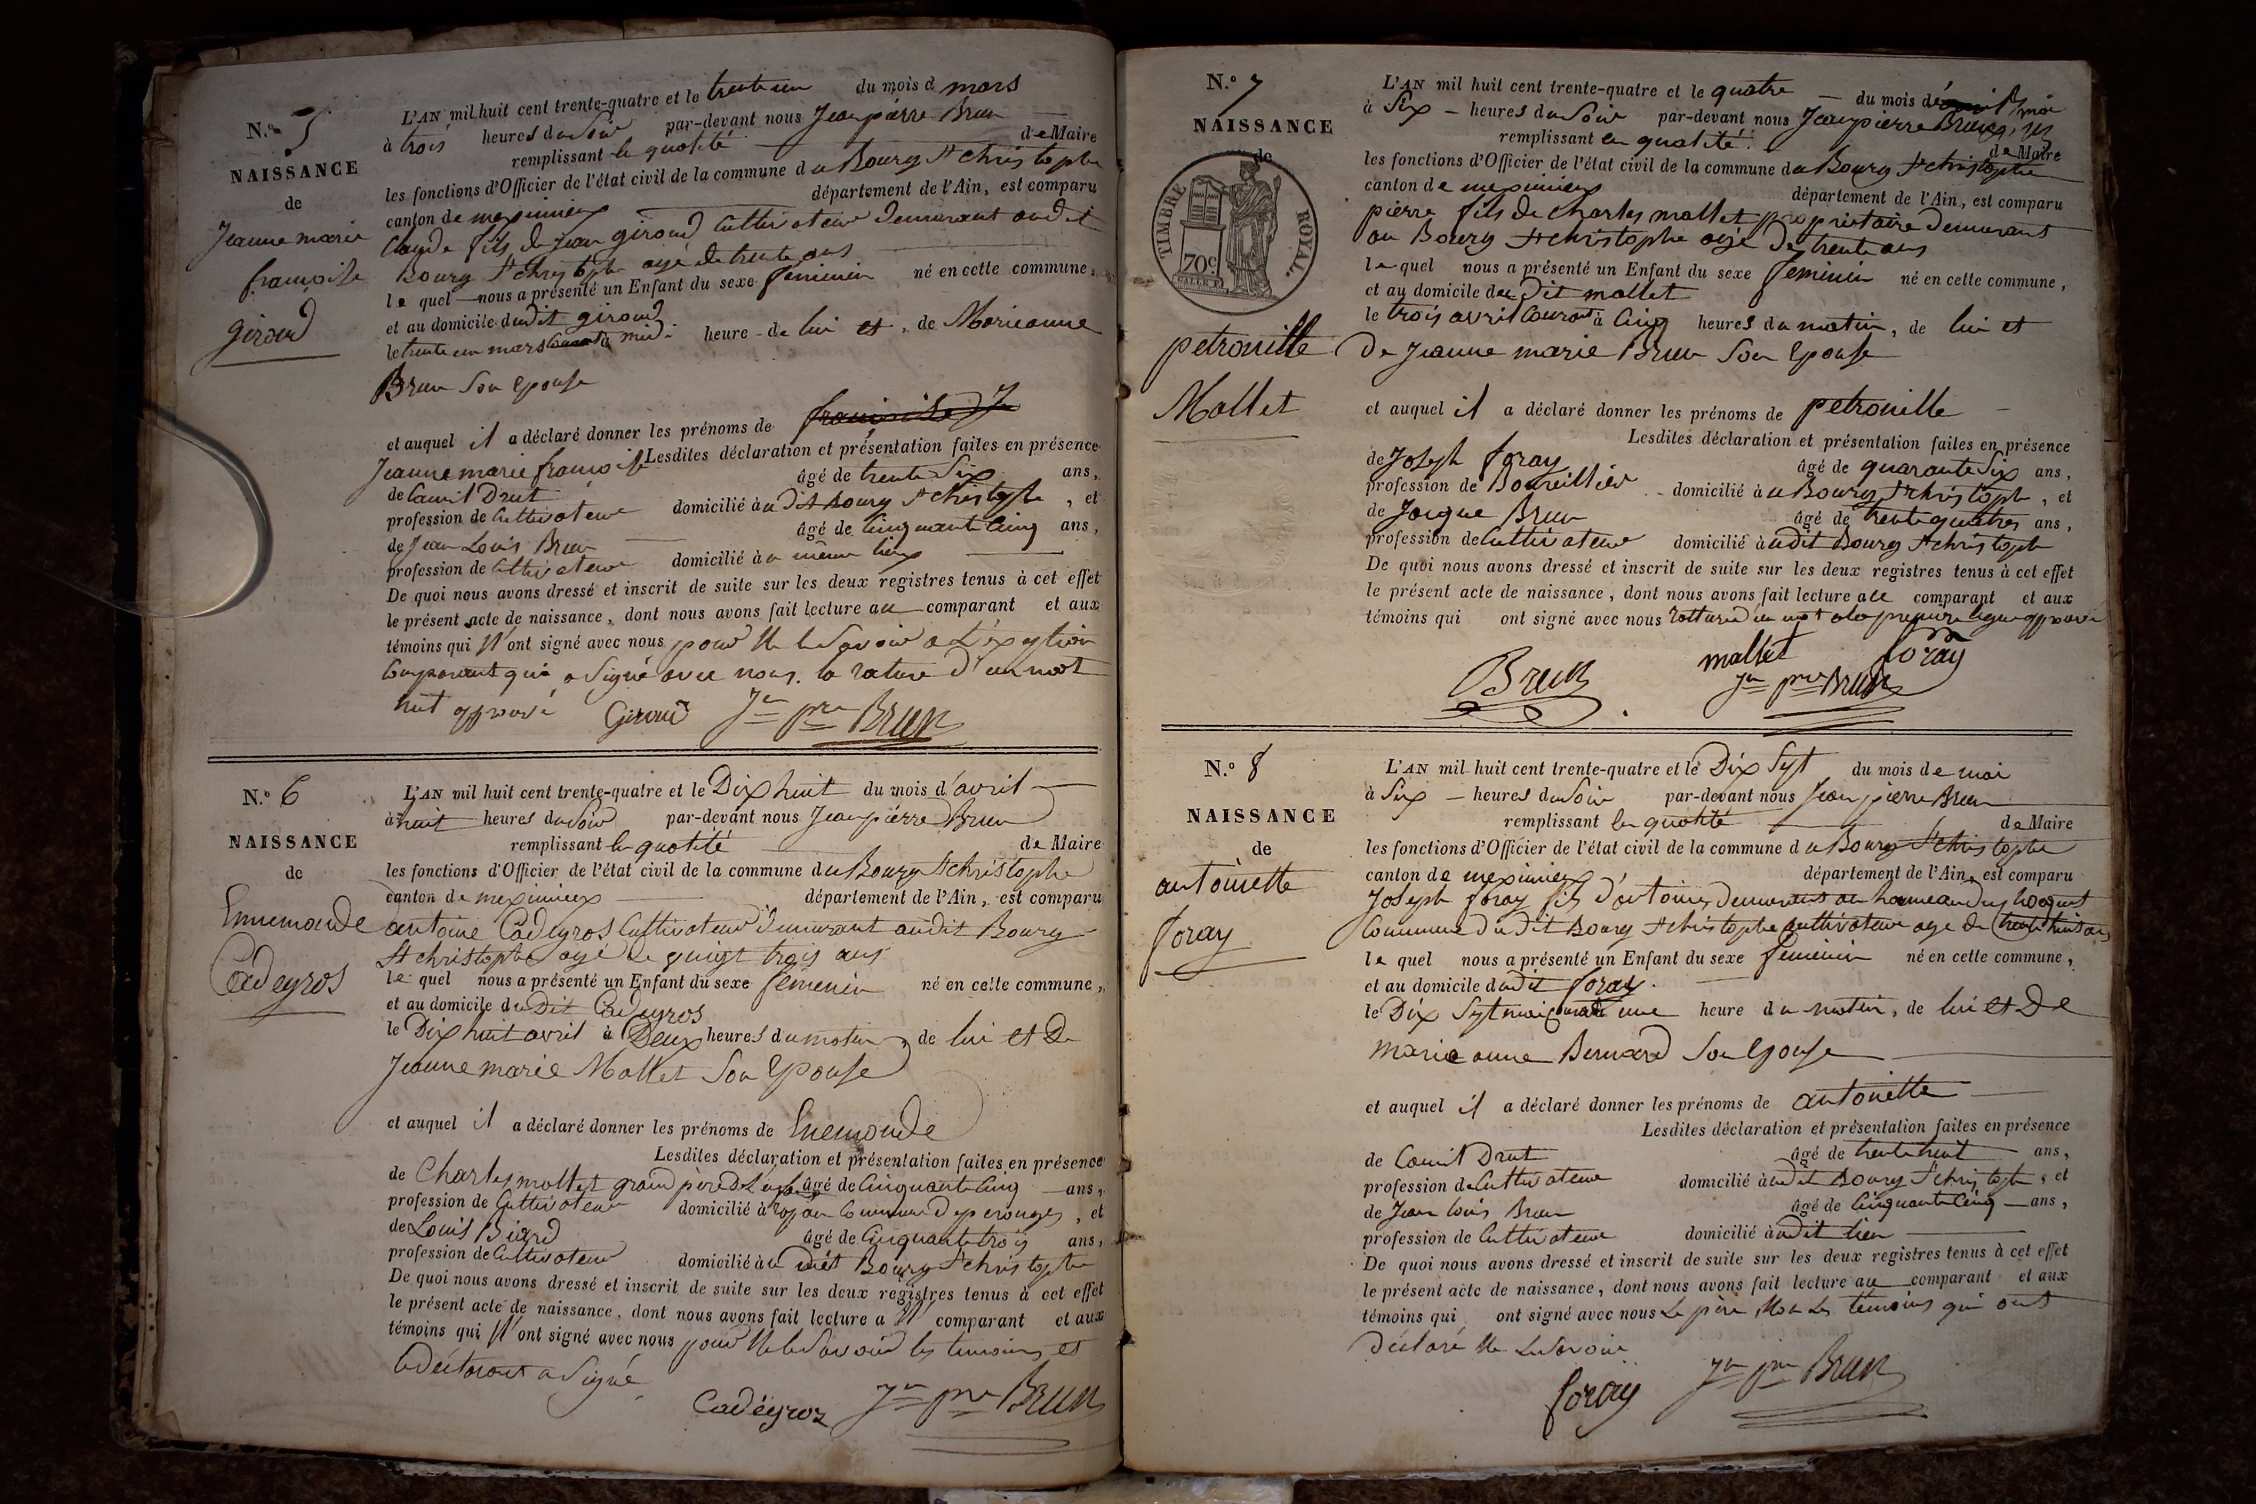 N.º 5
NAISSANCE
de
Jeanne marie
françoise
giroud
L'AN mil huit cent trente-quatre et le trente un du mois d mars
à trois heures du Soir par-devant nous Jean pierre Brun
remplissant en qualité de Maire
les fonctions d'Officier de l'état civil de la commune du Bourg St christophe
canton de meximieux département de l'Ain, est comparu
Claude fils de Jean giroud Cultivateur demeurant audit
Bourg St christophe agé de trente ans
le quel nous a présenté un Enfant du sexe feminin né en cette commune,
et au domicile dudit giroud
le trente un mars courant à midi heure de lui et, de Marieanne
Brun Son Epouse
et auquel il a déclaré donner les prénoms de
Jeanne marie françoise Lesdites déclaration et présentation faites en présence
de Camil Drut âgé de trente Six ans,
profession de Cultivateur domicilié audit Bourg St christophe, et
de Jean Louis Brun âgé de Cinquante Cinq ans,
profession de Cultivateur domicilié au même lieu
De quoi nous avons dressé et inscrit de suite sur les deux registres tenus à cet effet
le présent acte de naissance, dont nous avons fait lecture au comparant et aux
témoins qui N'ont signé avec nous pour Ne le Savoir a L'exception
Comparant qui a Signé avec nous. la rature d'un mot
nul approuvé Giroud Jn pre Brun
N.º 6
NAISSANCE
de
Ennemonde
Cadeyros
L'AN mil huit cent trente-quatre et le Dix huit du mois d'avril
à huit heures du Soir par-devant nous Jean pierre Brun
remplissant en qualité de Maire
les fonctions d'Officier de l'état civil de la commune du Bourg St christophe
canton de meximieux département de l'Ain, est comparu
antoine Cadeyros Cultivateur demeurant audit Bourg
St christophe agé de vingt trois ans
le quel nous a présenté un Enfant du sexe feminin né en cette commune,
et au domicile du Dit Cadeyros
le Dix huit avril à Deux heures du matin, de lui et De
Jeanne marie Mallet Son Epouse
et auquel il a déclaré donner les prénoms de Enemonde
Lesdites déclaration et présentation faites en présence
de Charles mallet grand père de L'enfant âgé de Cinquante Cinq ans,
profession de Cultivateur domicilié à Commune de perouges, et
de Louis Biard âgé de Cinquante trois ans,
profession de Cultivateur domicilié au dit Bourg St christophe
De quoi nous avons dressé et inscrit de suite sur les deux registres tenus à cet effet
le présent acte de naissance, dont nous avons fait lecture a comparant et aux
témoins qui N'ont signé avec nous pour Ne le Savoir les temoins et
le déclarant a Signé
Cadéyroz Jn pre Brun
N.º 7
NAISSANCE
de
TIMBRE ROYAL.
70 c.
petronille
Mallet
L'AN mil huit cent trente-quatre et le quatre du mois d
à Six heures du Soir par-devant nous Jean pierre Brun
remplissant en qualité de Maire
les fonctions d'Officier de l'état civil de la commune du Bourg St christophe
canton de meximieux département de l'Ain, est comparu
pierre fils de charles mallet propriétaire demeurant
au Bourg St christophe agé de trente ans
le quel nous a présenté un Enfant du sexe feminin né en cette commune,
et au domicile du Dit mallet
le trois avril Courant à Cinq heures du matin, de lui et
De Jeanne marie Brun Son Epouse
et auquel il a déclaré donner les prénoms de petronille
Lesdites déclaration et présentation faites en présence
de Joseph foray âgé de quarante Six ans,
profession de domicilié au Bourg St christophe, et
de Jacque Brun âgé de trente quatres ans,
profession de Cultivateur domicilié audit Bourg St christophe
De quoi nous avons dressé et inscrit de suite sur les deux registres tenus à cet effet
le présent acte de naissance, dont nous avons fait lecture au comparant et aux
témoins qui ont signé avec nous rature d'un mot a la premiere ligne approuvé
mallet foray
Brun Jn pre Brun
N.º 8
NAISSANCE
de
antoinette
foray
L'AN mil huit cent trente-quatre et le Dix Sept du mois de mai
à Six heures du Soir par-devant nous Jean pierre Brun
remplissant en qualité de Maire
les fonctions d'Officier de l'état civil de la commune du Bourg St christophe
canton de meximieux département de l'Ain, est comparu
Joseph foray fils d'antoine demeurant au hameau
Commune du dit Bourg St christophe cultivateur age de trente huit ans
le quel nous a présenté un Enfant du sexe feminin né en cette commune,
et au domicile dudit foray
le Dix Sept mai Courant à une heure du matin, de lui et De
marieanne Bernard Son Epouse
et auquel il a déclaré donner les prénoms de antoinette
Lesdites déclaration et présentation faites en présence
de Camil Drut âgé de trente huit ans,
profession de Cultivateur domicilié audit Bourg St christophe, et
de Jean Louis Brun âgé de Cinquante Cinq ans,
profession de Cultivateur domicilié audit lieu
De quoi nous avons dressé et inscrit de suite sur les deux registres tenus à cet effet
le présent acte de naissance, dont nous avons fait lecture au comparant et aux
témoins qui ont signé avec nous Le père Non Les témoins qui ont
Déclaré Ne Le Savoir
foray Jn pre Brun